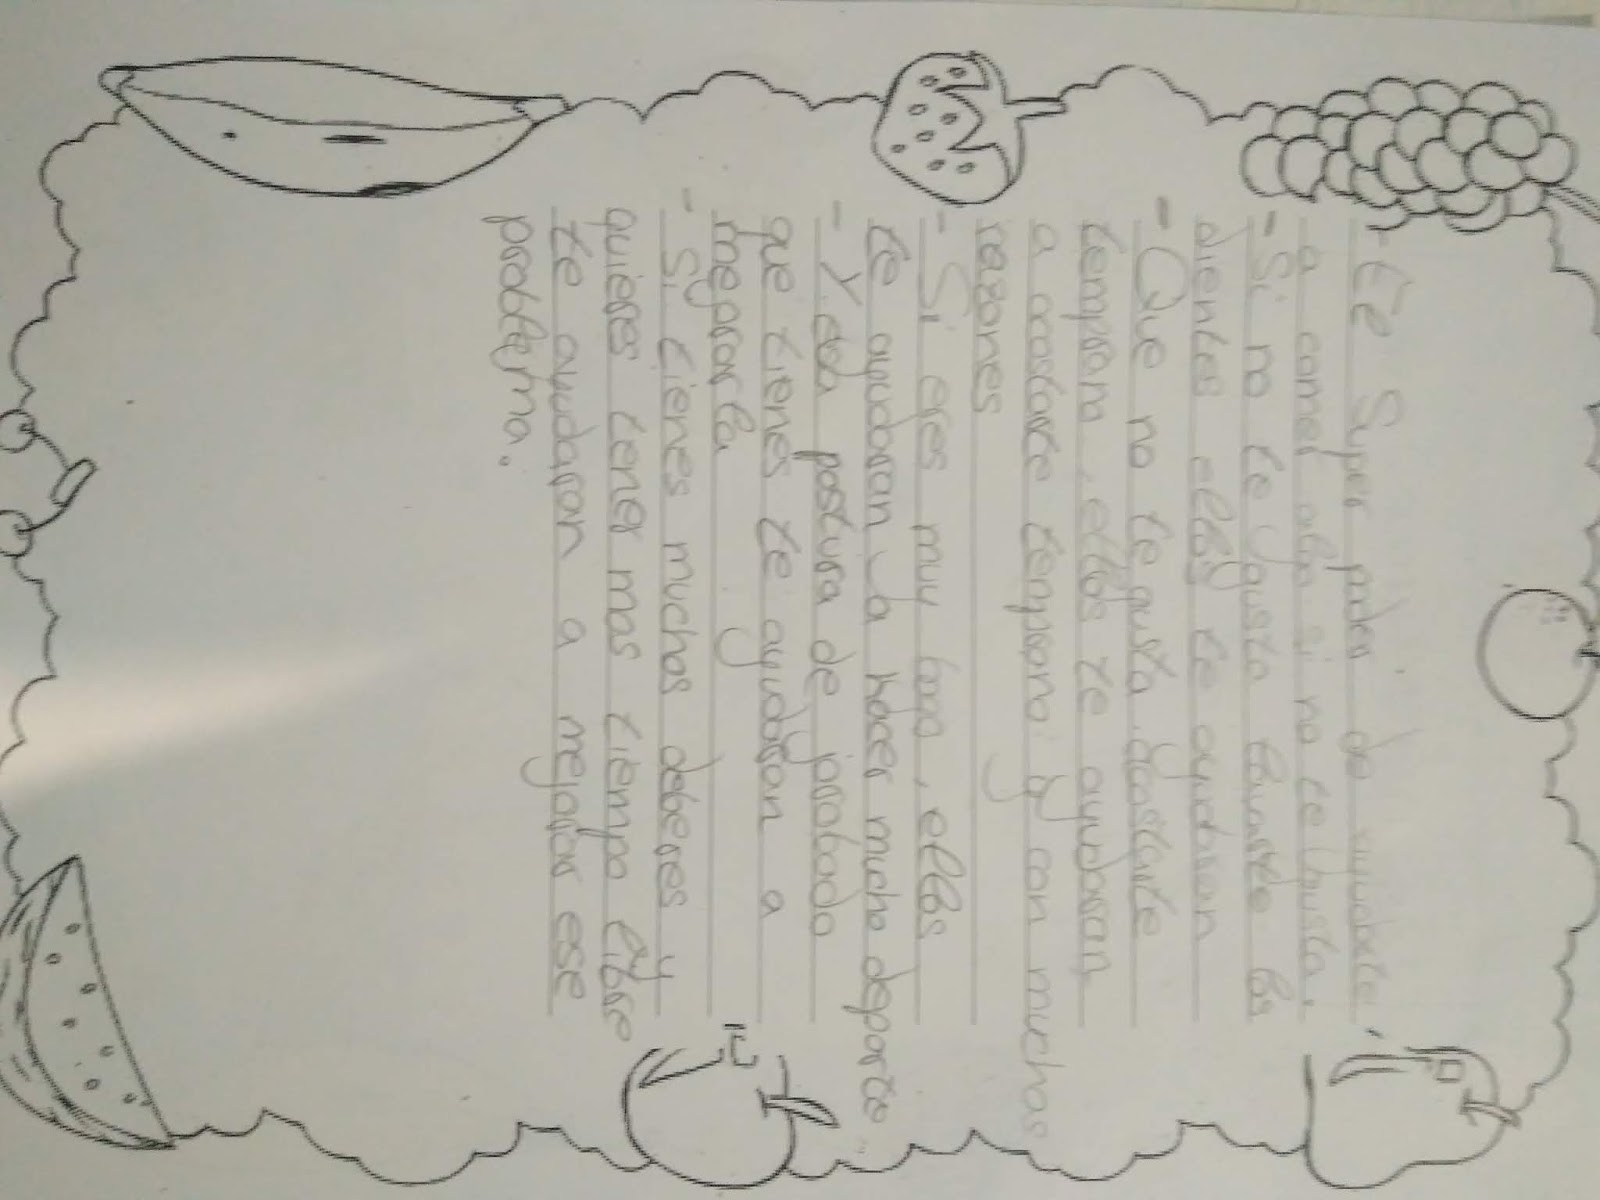 - El Super poder de ayudarte
a comer algo si no te gusta.
- Si no te gusta lavarte los
dientes ellos te ayudaran
- Que no te gusta acostarte
temprano, ellos te ayudaran
a acostarte temprano y con muchas
razones
- Si eres muy bago, ellos
te ayudaran a hacer mucho deporte
- Y esta postura de jorobado
que tienes te ayudaran a
mejorarla
- Si tienes muchos deberes y
quieres tener mas tiempo libre
te ayudaran a mejorar ese
problema.